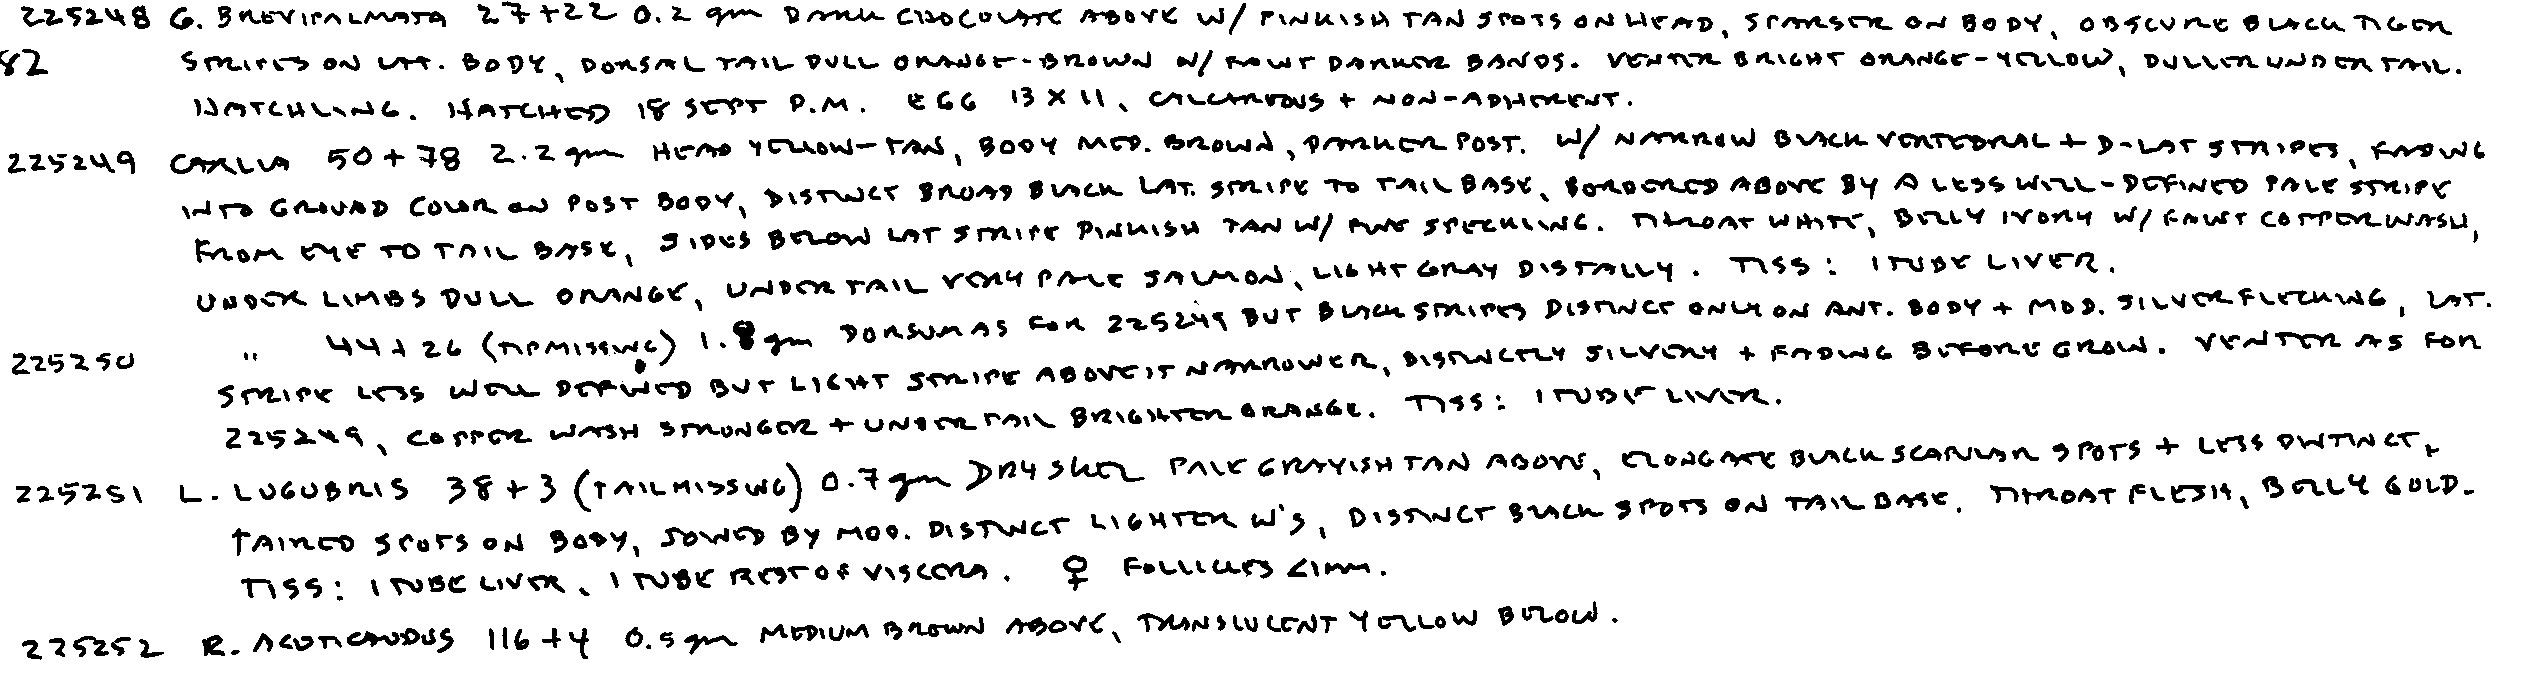 225248 G. BREVIPALMATA 27+22 0.2 gm DARK CHOCOLATE ABOVE W/ PINKISH TAN SPOTS ON HEAD, SPARSER ON BODY, OBSCURE BLACK TIGER
82 STRIPES ON LAT. BODY, DORSAL TAIL DULL ORANGE-BROWN W/ FAINT DARKER BANDS. VENTER BRIGHT ORANGE-YELLOW, DULLER UNDER TAIL.
HATCHLING. HATCHED 18 SEPT P.M. EGG 13 X 11, CALCAREOUS + NON-ADHERENT.
225249 CARLIA 50+78 2.2 gm HEAD YELLOW-TAN, BODY MED. BROWN, DARKER POST. W/ NARROW BLACK VERTEBRAL + D-LAT STRIPES, FADING
INTO GROUND COLOR ON POST BODY, DISTINCT BROAD BLACK LAT. STRIPE TO TAIL BASE, BORDERED ABOVE BY A LESS WELL-DEFINED PALE STRIPE
FROM EYE TO TAIL BASE, SIDES BELOW LAT STRIPE PINKISH TAN W/ FINE SPECKLING. THROAT WHITE, BELLY IVORY W/ FAINT COPPER WASH,
UNDER LIMBS DULL ORANGE, UNDER TAIL VERY PALE SALMON, LIGHT GRAY DISTALLY. TISS: 1 TUBE LIVER.
225250 " 44+26 (TIP MISSING) 1.8 gm DORSUM AS FOR 225249 BUT BLACK STRIPES DISTINCT ONLY ON ANT. BODY + MOD. SILVER FLECKING, LAT.
STRIPE LESS WELL DEFINED BUT LIGHT STRIPE ABOVE IT NARROWER, DISTINCTLY SILVERY + FADING BEFORE GROIN. VENTER AS FOR
225249, COPPER WASH STRONGER + UNDER TAIL BRIGHTER ORANGE. TISS: 1 TUBE LIVER.
225251 L. LUGUBRIS 38+3 (TAIL MISSING) 0.7 gm DRY SKEL PALE GRAYISH TAN ABOVE, ELONGATE BLACK SCAPULAR SPOTS + LESS DISTINCT,
PAIRED SPOTS ON BODY, JOINED BY MOD. DISTINCT LIGHTER W'S, DISTINCT BLACK SPOTS ON TAIL BASE. THROAT FLESH, BELLY GOLD.
TISS: 1 TUBE LIVER, 1 TUBE REST OF VISCERA. ♀ FOLLICLES <1mm.
225252 R. ACUTICAUDUS 116+4 0.5 gm MEDIUM BROWN ABOVE, TRANSLUCENT YELLOW BELOW.